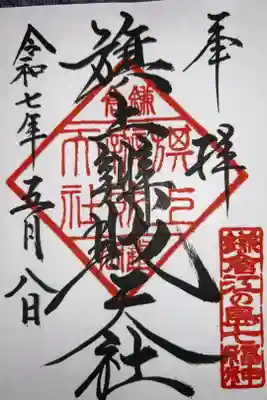 奉拝
旗上辯財天社
令和七年五月八日
鎌倉
旗上弁財天社
鎌倉江の島七福神